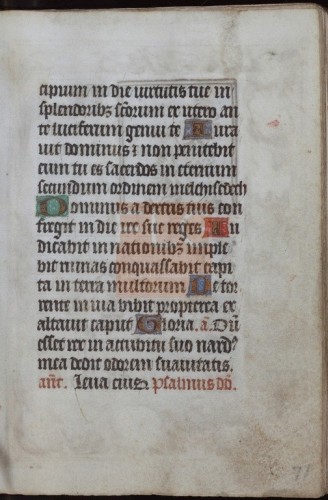 cipium in die virtutis tue in
splendoribꝫ scōrum ex utero an
te luciferum genui te Iura
vit dominus ⁊ non penitebit
eum tu es sacerdos in eternum
secundum ordinem melchisedech
Dominus a dextris tuis con
fregit in die ire sue reges Iu
dicabit in nationibꝫ imple
bit ruinas conquassabit capi
ta in terra multorum De tor
rente in via bibit propterea ex
altavit caput Gloria. ā. Dū
esset rex in accubitu suo nardꝰ
mea dedit odorem suavitatis.
añt. Leva eius psalmus dd.
71